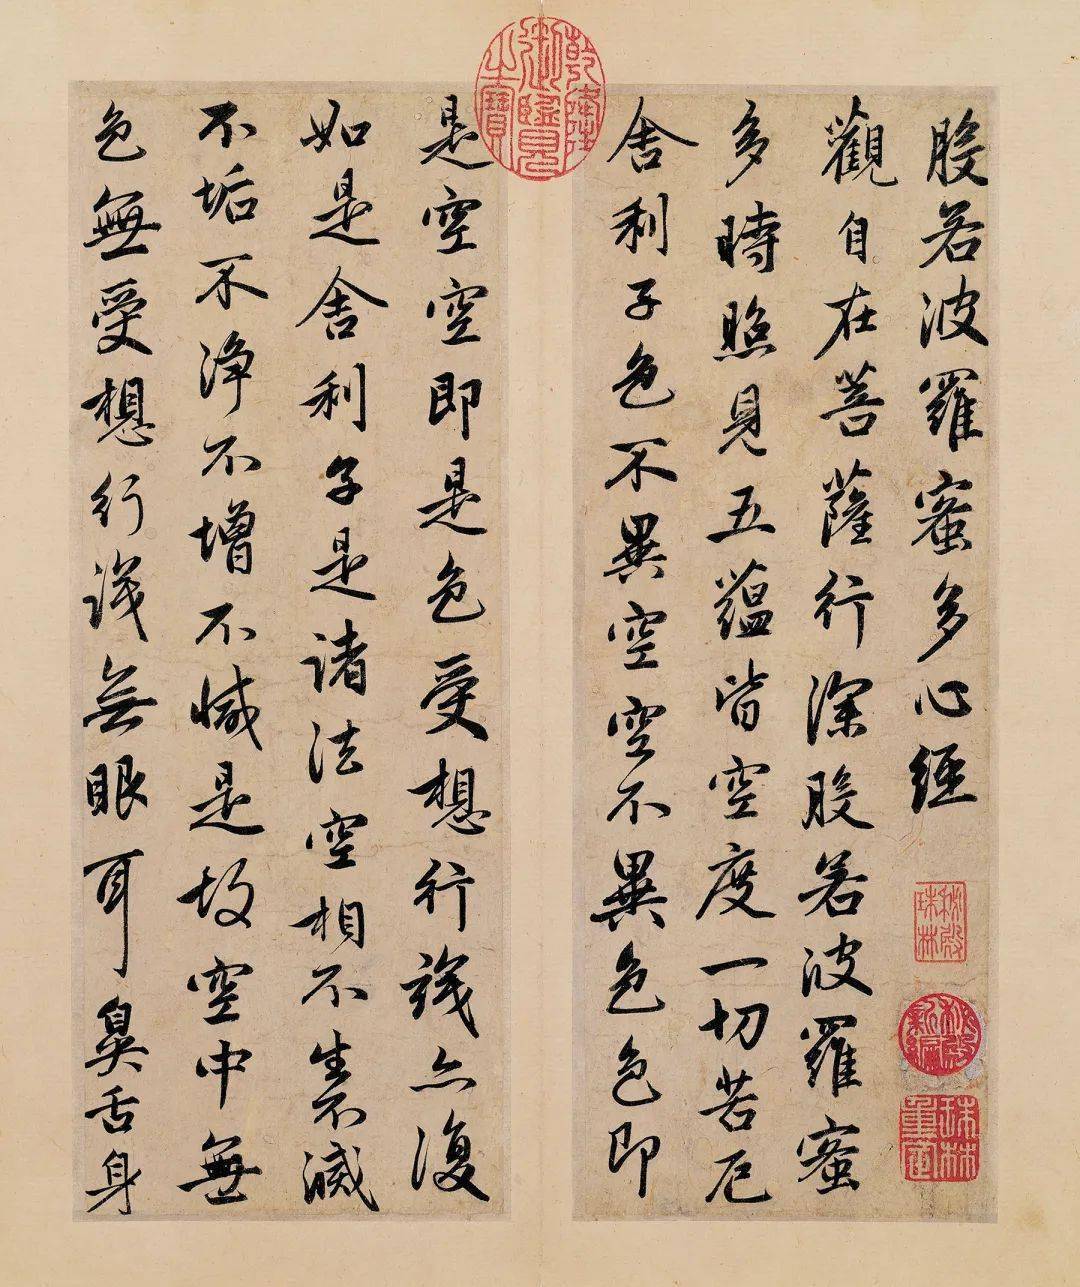 般若波羅蜜多心經
觀自在菩薩行深般若波羅蜜
多時照見五蘊皆空度一切苦厄
舍利子色不異空空不異色色即
是空空即是色受想行識亦復
如是舍利子是諸法空相不生不滅
不垢不淨不增不減是故空中無
色無受想行識無眼耳鼻舌身
乾隆御覽之寶
秘殿珠林
秘殿新編
珠林重定